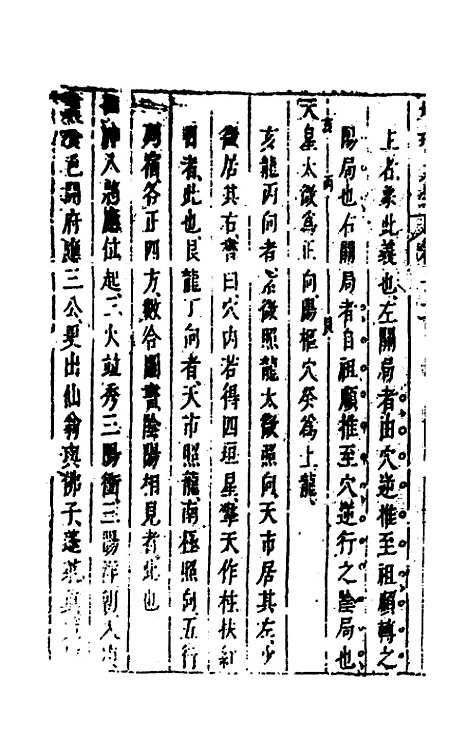 上名彖此義也左關局者由穴逆推至祖順轉之
陽局也右關局者自祖順推至穴逆行之陰局也
天皇太微爲正向陽樞穴癸爲上龍
亥 丙 艮
亥龍丙向者紫微照龍太微照向天市居其左少
微居其右書曰穴内若得四垣星擎天作柱扶紅
日者此也艮龍丁向者天市照龍南極照向五行
列宿各正四方數合圖書陰陽相見者此也
入將應位起三火竝秀三陽衝三陽
邑開府應三公更出仙翁與佛子蓬萊